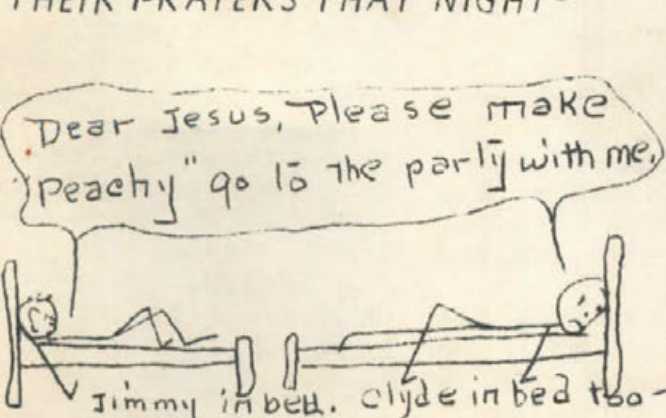 THEIR PRAYERS THAT NIGHT-
Dear Jesus, Please make
"Peachy" go to the party with me.
Jimmy in bed. Clyde in bed too-